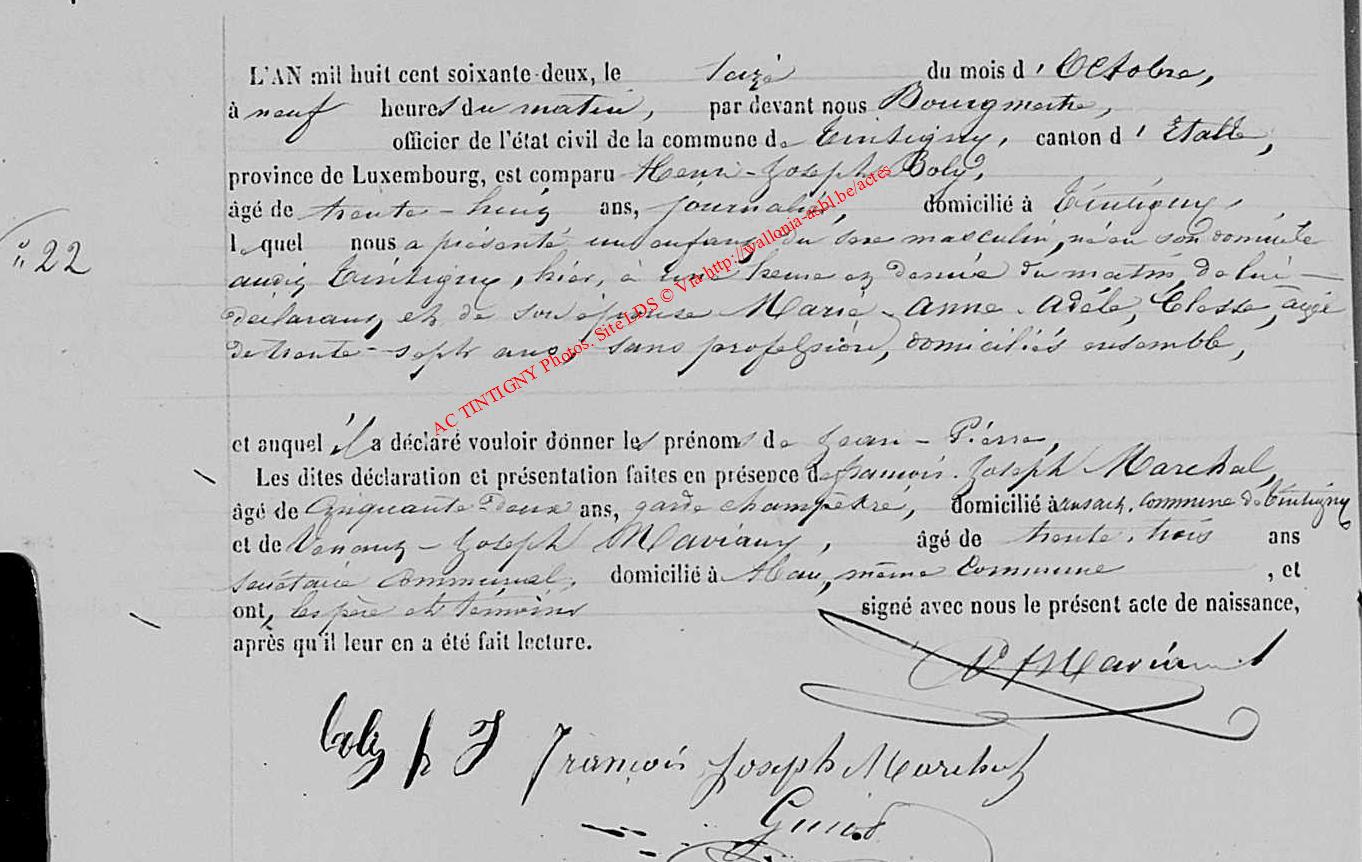 L'AN mil huit cent soixante-deux, le Seize du mois d'Octobre,
à neuf heures du matin, par devant nous Bourgmestre,
officier de l'état civil de la commune de Tintigny, canton d'Etalle,
province de Luxembourg, est comparu Henri-Joseph Boly,
âgé de trente-huit ans, journalier, domicilié à Tintigny,
lequel nous a présenté un enfant du sexe masculin, né en son domicile
N° 22
audit Tintigny, hier, à une heure et demie du matin, de lui
déclarant, et de son épouse Marie-Anne-Adèle, Closse, âgée
de trente-sept ans, sans profession, domiciliés ensemble,
et auquel il a déclaré vouloir donner les prénoms de Jean-Pierre,
Les dites déclaration et présentation faites en présence de françois-Joseph Marchal,
âgé de Cinquante Deux ans, garde champêtre, domicilié à ansart, commune de Tintigny
et de Venant-Joseph Maviaux, âgé de trente-trois ans
secrétaire communal, domicilié à han, même commune, et
ont, les père et témoins signé avec nous le présent acte de naissance,
après qu'il leur en a été fait lecture.
boly h J François Joseph Marchal
AC TINTIGNY Photos. Site LDS © Via http://wallonia-asbl.be/actes